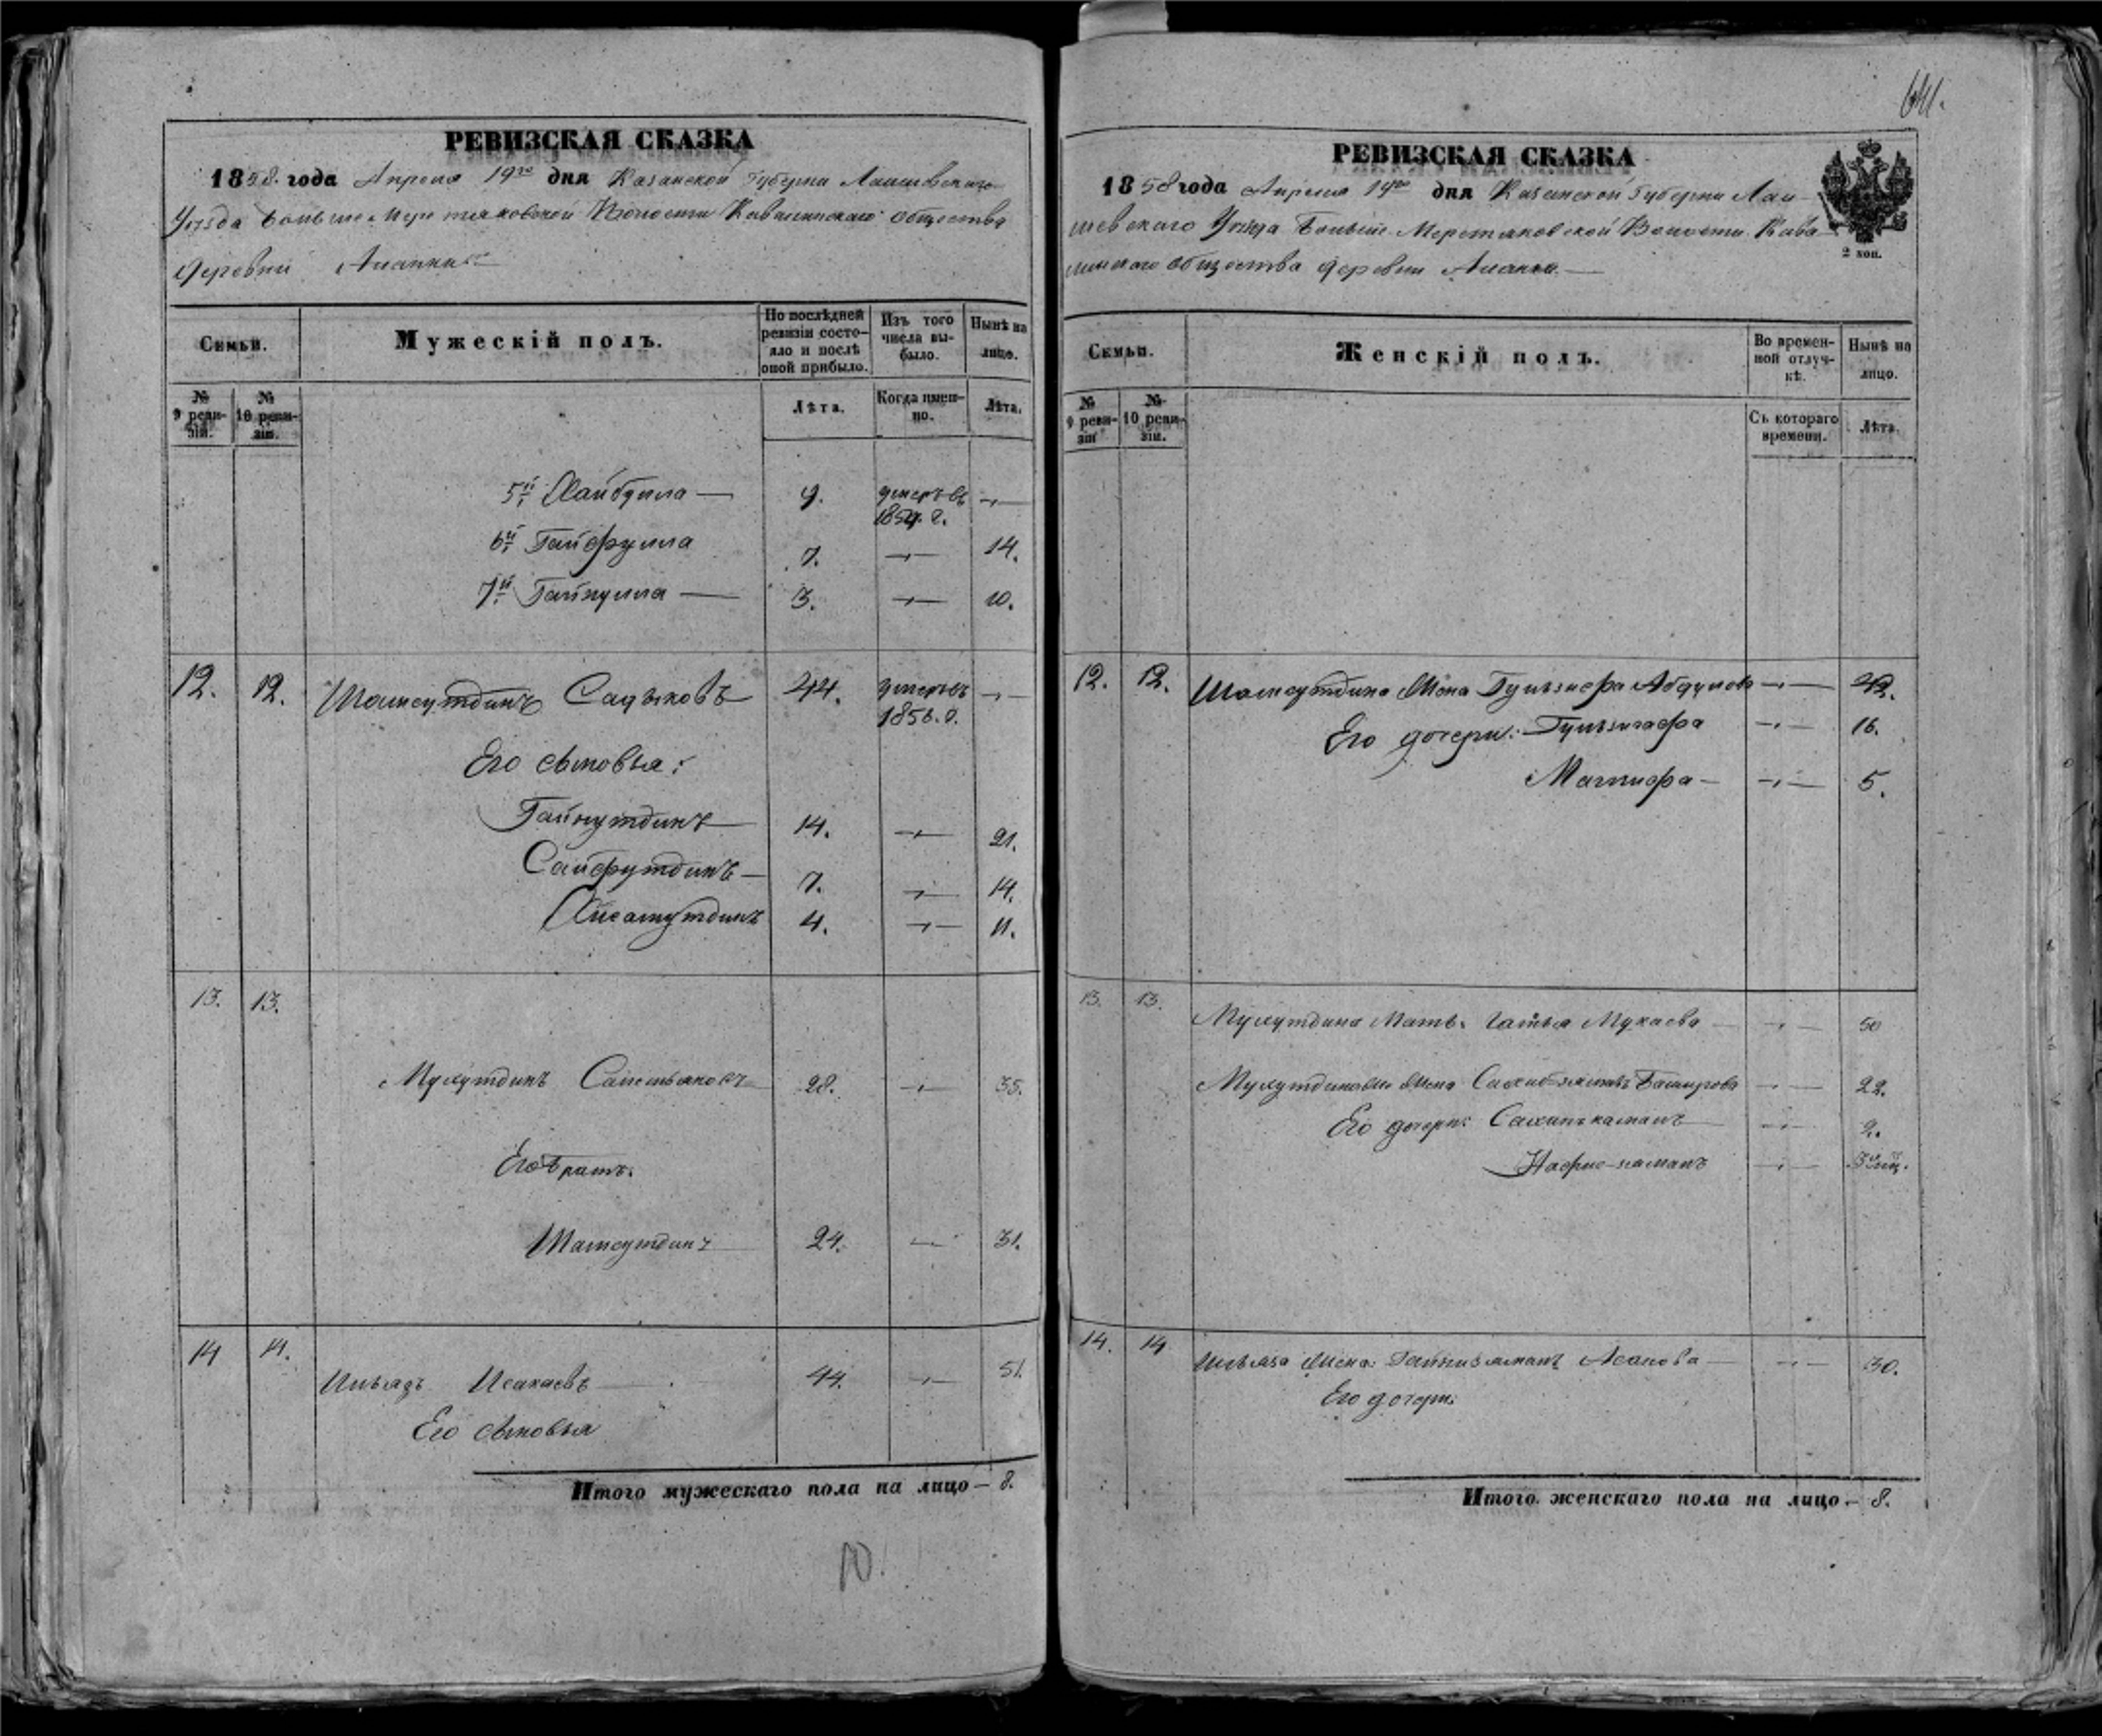 РЕВИЗСКАЯ СКАЗКА
1858 года Апреля 19го дня Казанской Губерни Лаишевскаго
Уѣзда Больше Меретяковской Волости Кавалинскаго общества
деревни
Семьи.
Мужескій полъ.
По послѣдней ревизіи состояло и послѣ оной прибыло.
Изъ того числа выбыло.
Нынѣ на лицо.
№ 9 ревизіи.
№ 10 ревизіи.
Лѣта.
Когда именно.
Лѣта.
5й Хайбулла — 9. умеръ въ 1854. г. —
6й Гайфулла 7. — 14.
7й Гайнулла — 3. — 10.
12. 12. Шамсутдинъ Садыковъ 44. умеръ въ 1856. г. —
Его сыновья:
Гайнутдинъ 14. — 21.
Сайфутдинъ — 7. — 14.
Хисамутдинъ 4. — 11.
13. 13.
Мухутдинъ 28. — 35.
Его братъ.
Шамсутдинъ 24. — 31.
14 14.
Ильязъ Исакаевъ 44. — 51.
Его сыновья
Итого мужескаго пола на лицо — 8.
10.
641.
РЕВИЗСКАЯ СКАЗКА
1858 года Апреля 19го дня Казанской Губерни Лаи-
шевскаго Уѣзда Больше Меретяковской Волости Кава-
линскаго общества деревни
2 коп.
Семьи.
Женскій полъ.
Во временной отлучкѣ.
Нынѣ на лицо.
№ 9 ревизіи
№ 10 ревизіи.
Съ котораго времени.
Лѣта.
12. 12. Шамсутдина Жена Гульзифа — 42.
Его дочери: — 16.
Магзифа — — 5.
13. 13. Мухутдина Мать — 50
Мухутдинова Жена Баширова — 22.
Его дочери: — 2.
—
14. 14 Ильяза Жена: Асанова — 30.
Его дочери:
Итого женскаго пола на лицо — 8.